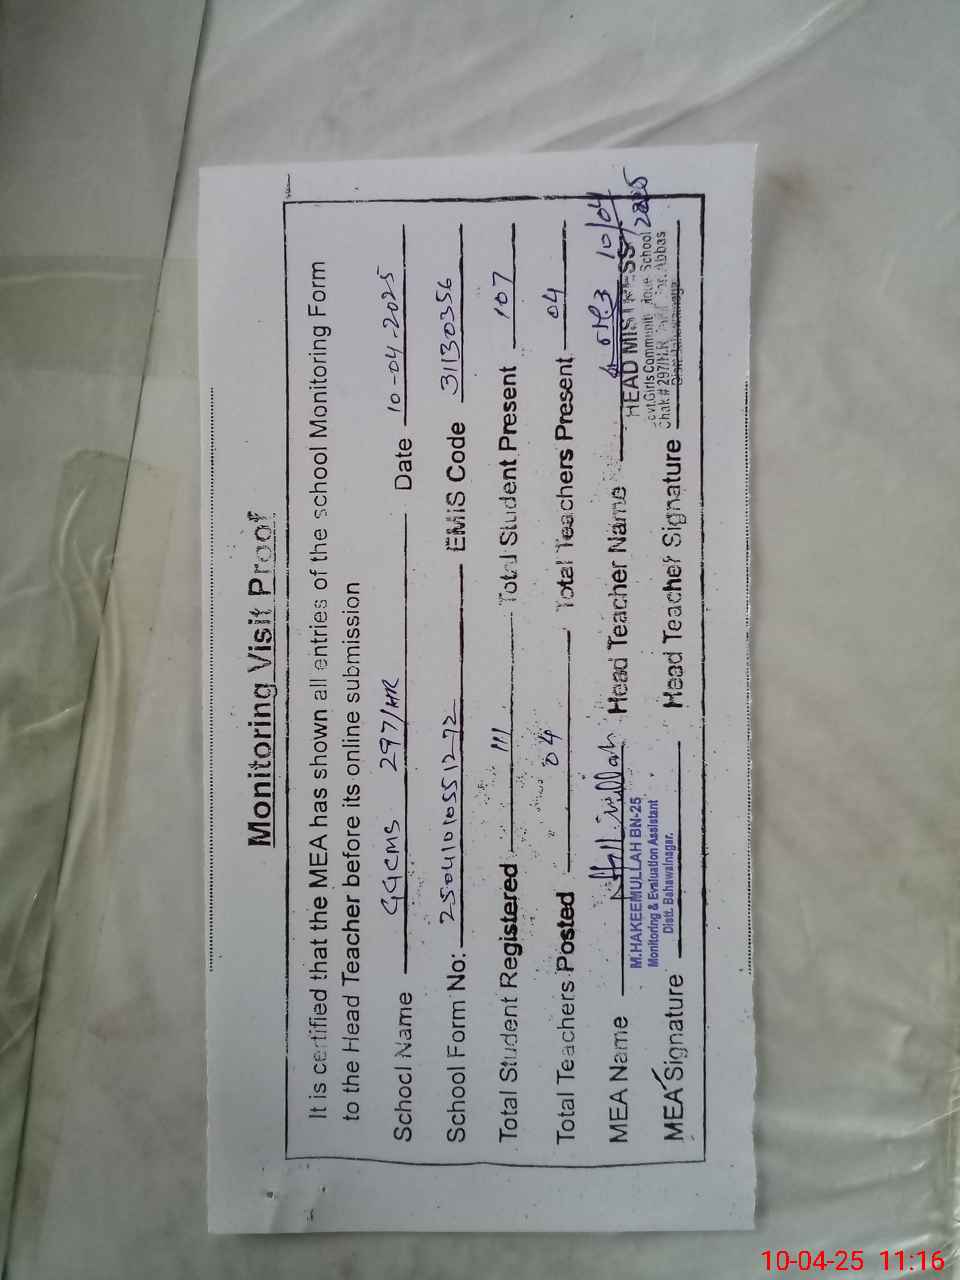 Monitoring Visit Proof
It is certified that the MEA has shown all entries of the school Monitoring Form
to the Head Teacher before its online submission
School Name GGCMS 297/HR Date 10-04-2025
School Form No: 25041010551272 EMIS Code 31130356
Total Student Registered 111 Total Student Present 107
Total Teachers Posted 04 Total Teachers Present 04
MEA Name Head Teacher Name 10/04/2025
M.HAKEEMULLAH BN-25
Monitoring & Evaluation Assistant
Distt. Bahawalnagar.
HEAD MISTRESS
Govt.Girls Community School
Chak # 297/H.R Abbas
MEA Signature Head Teacher Signature
10-04-25 11:16